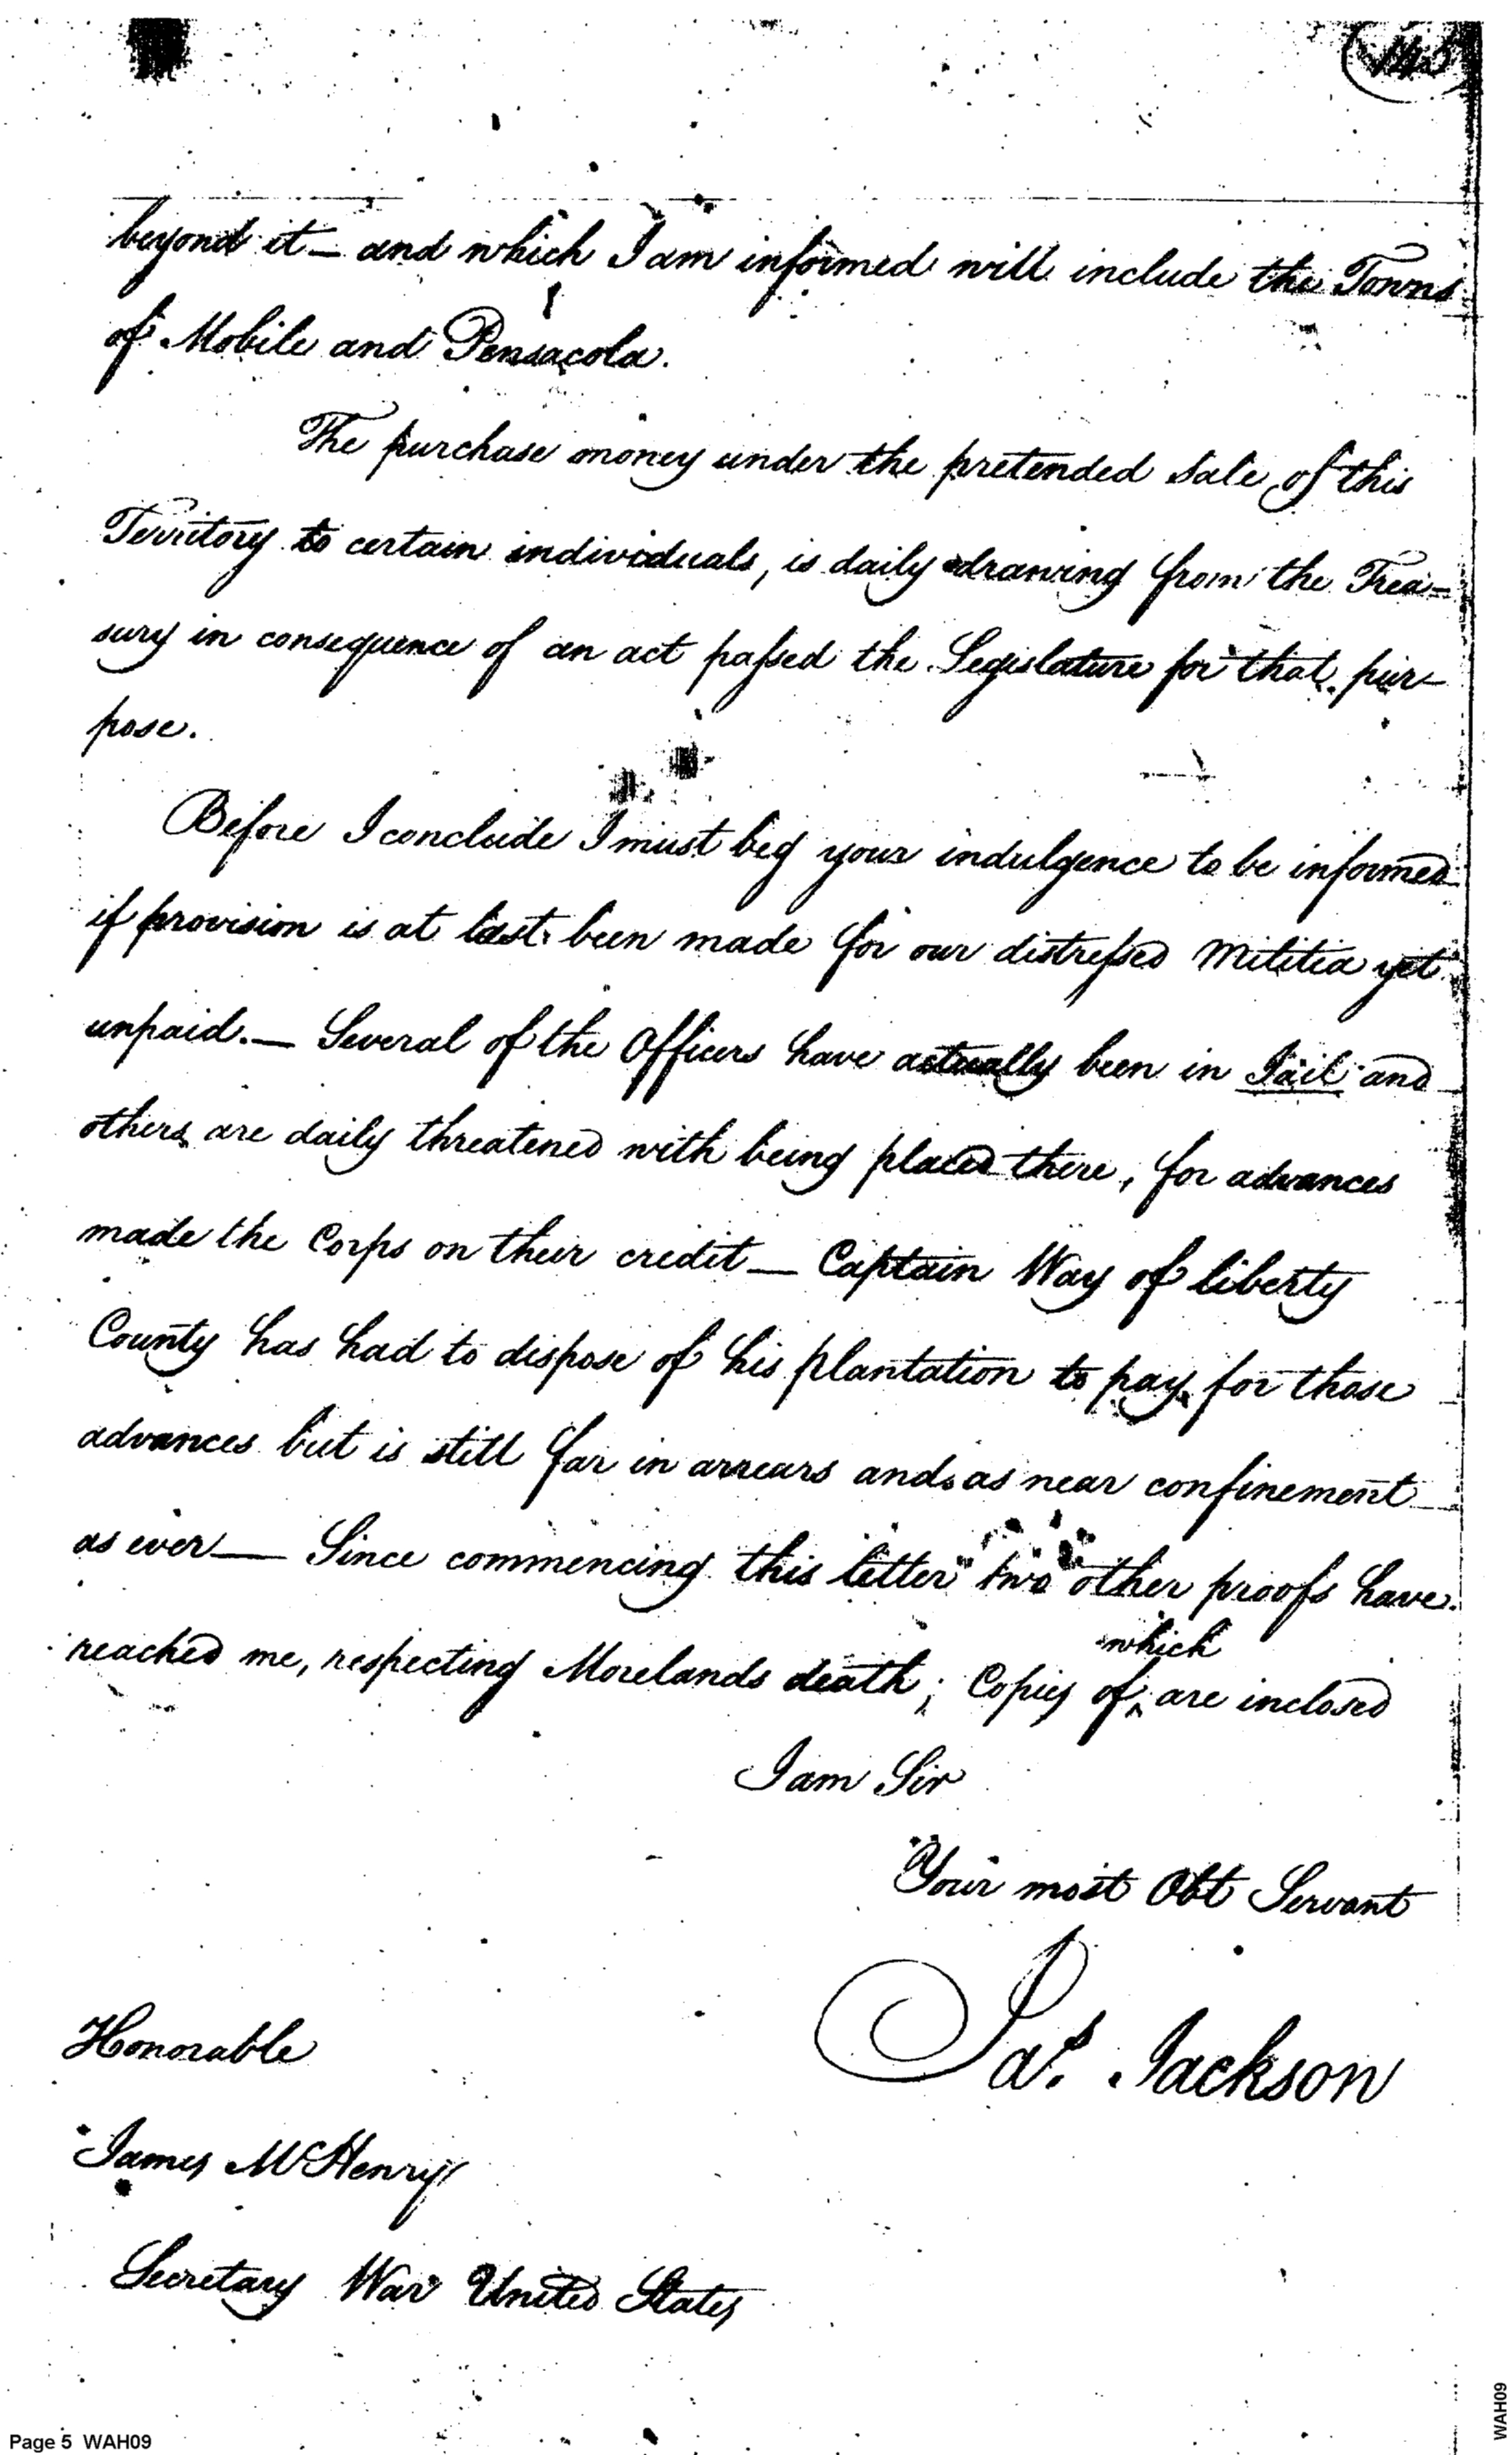 beyond it — and which I am informed will include the Towns
of Mobile and Pensacola.
The purchase money under the pretended Sale, of this
Territory to certain individuals, is daily drawing from the Trea-
sury in consequence of an act passed the Legislature for that pur-
pose.
Before I conclude I must beg your indulgence to be informed
if provision is at last been made for our distressed Militia yet
unpaid. — Several of the Officers have actually been in Jail and
others are daily threatened with being placed there, for advances
made the Corps on their credit — Captain Way of liberty
County has had to dispose of his plantation to pay for those
advances but is still far in arrears and as near confinement
as ever — Since commencing this letter two other proofs have
reached me, respecting Morelands death; Copies of which are inclosed
I am Sir
Your most Obt Servant
Jas. Jackson
Honorable
James McHenry
Secretary War United States
Page 5 WAH09
WAH09